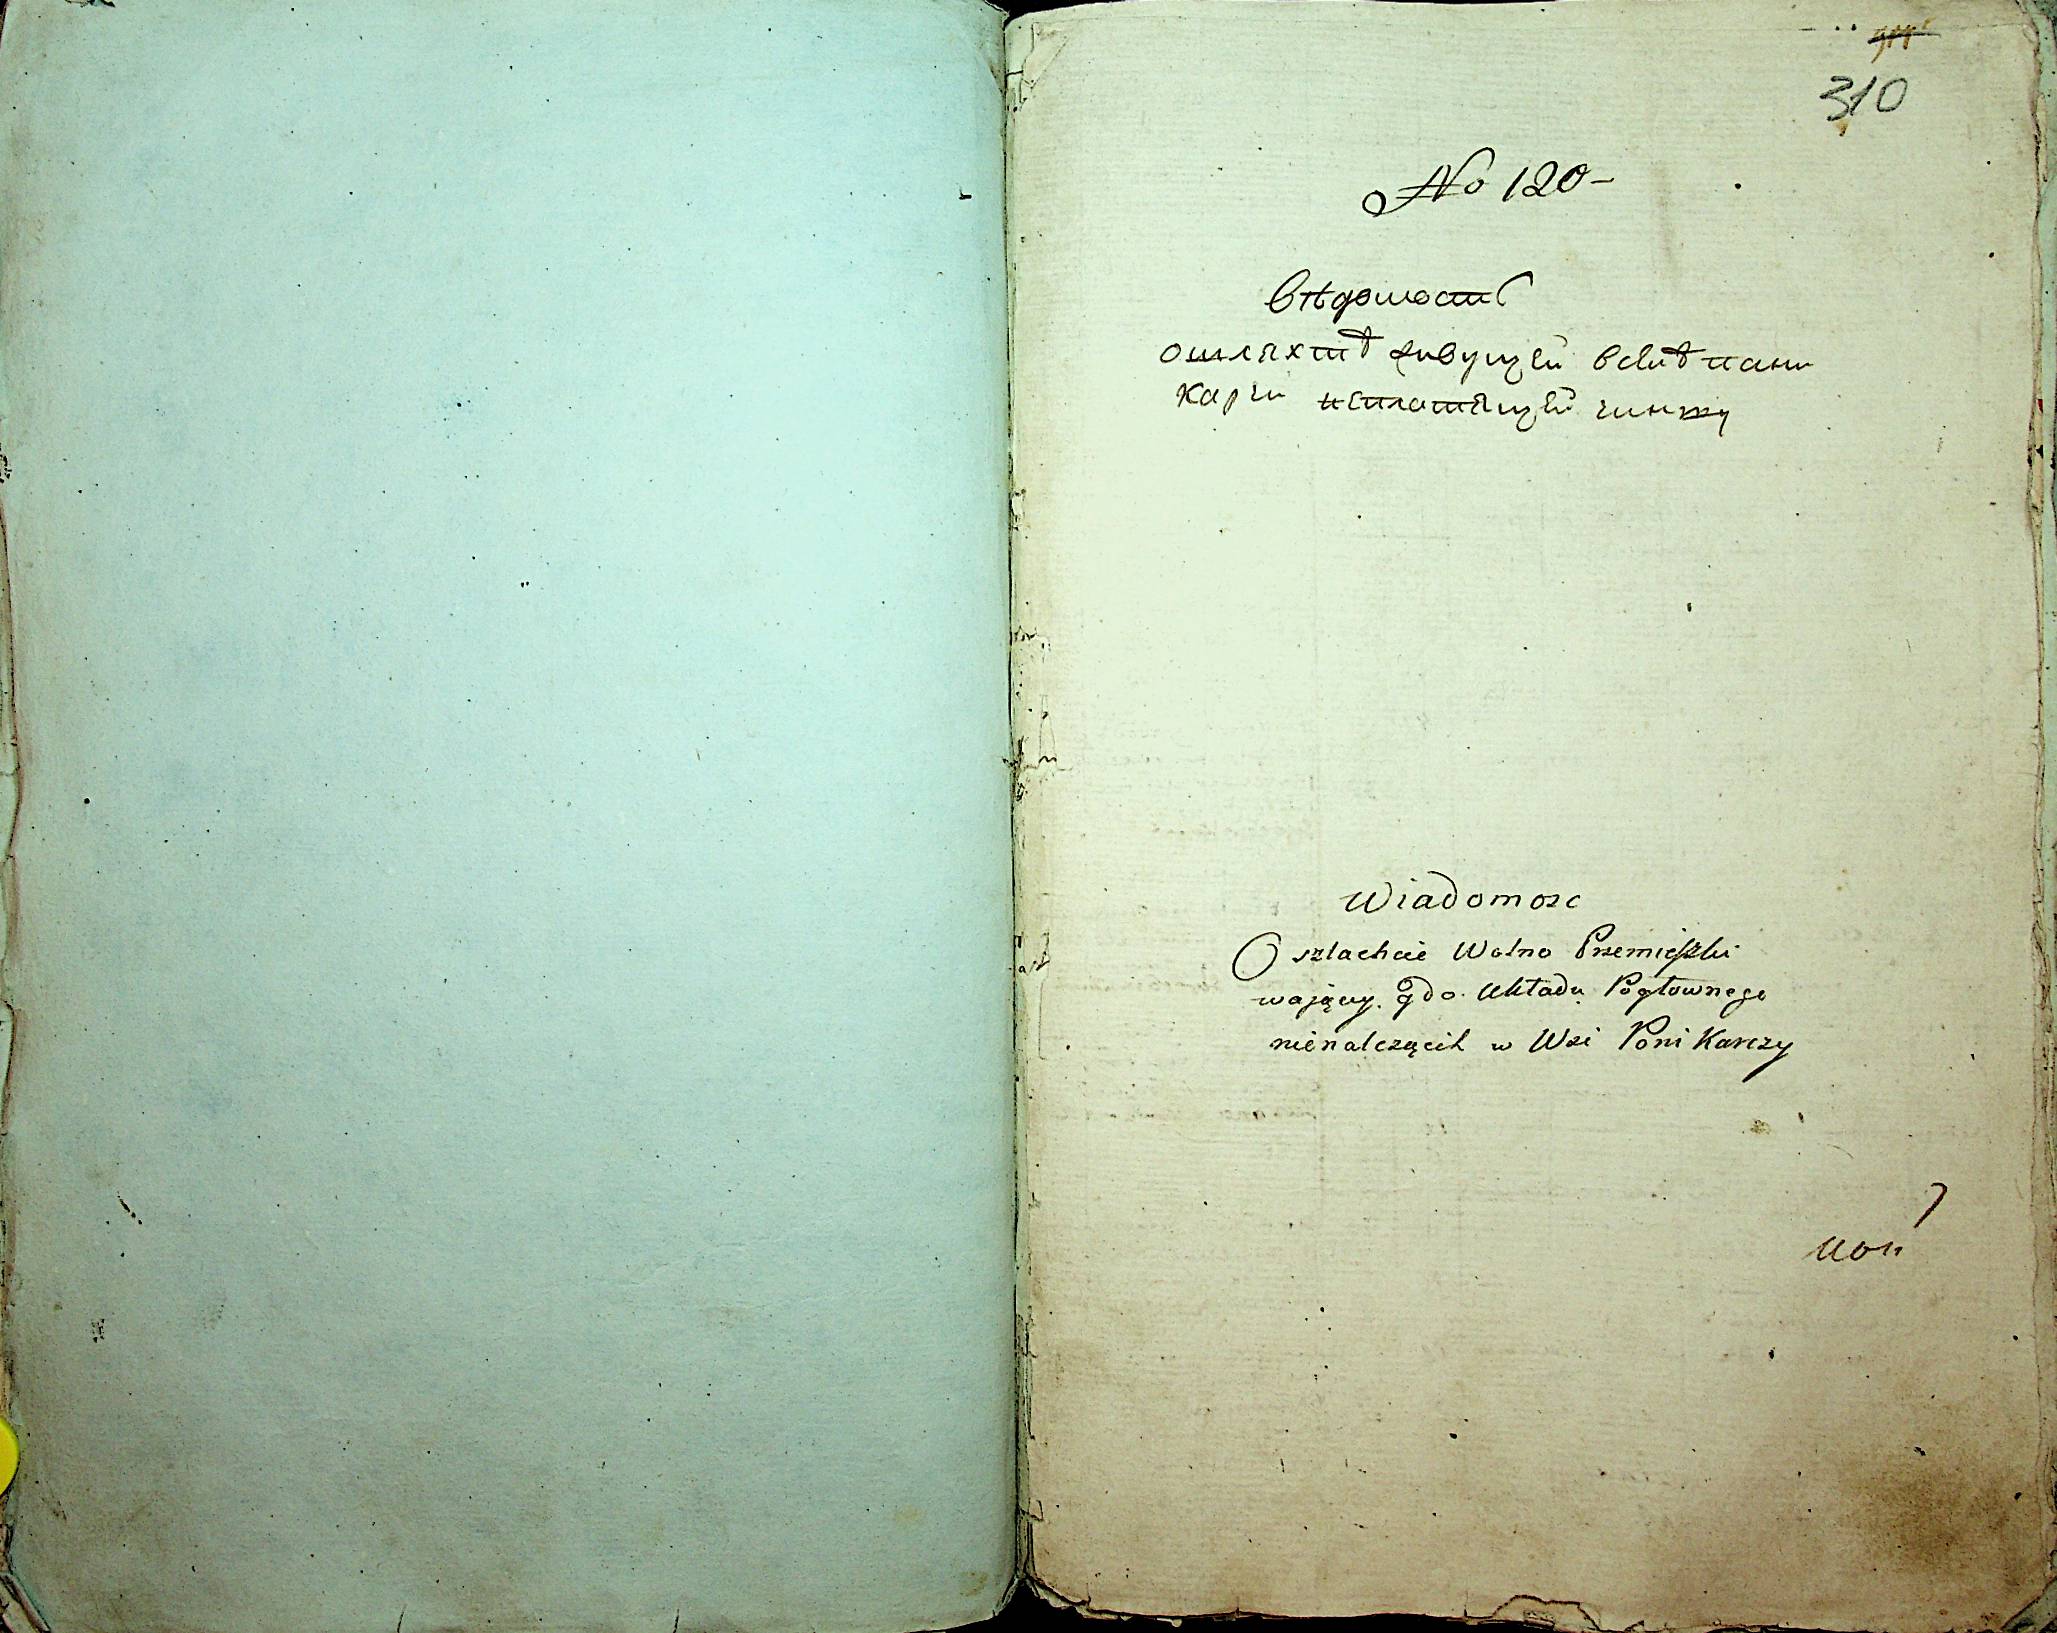 310
No 120-
вѣдомость
ошляхтѣ живущей вселѣ пани
карчи неплатящей чинжу
Wiadomosc
O szlachcie Wolno Przemięszki
wający. gdo. Układu Pogłownego
nienalczącih w Wsi Poni Karczy